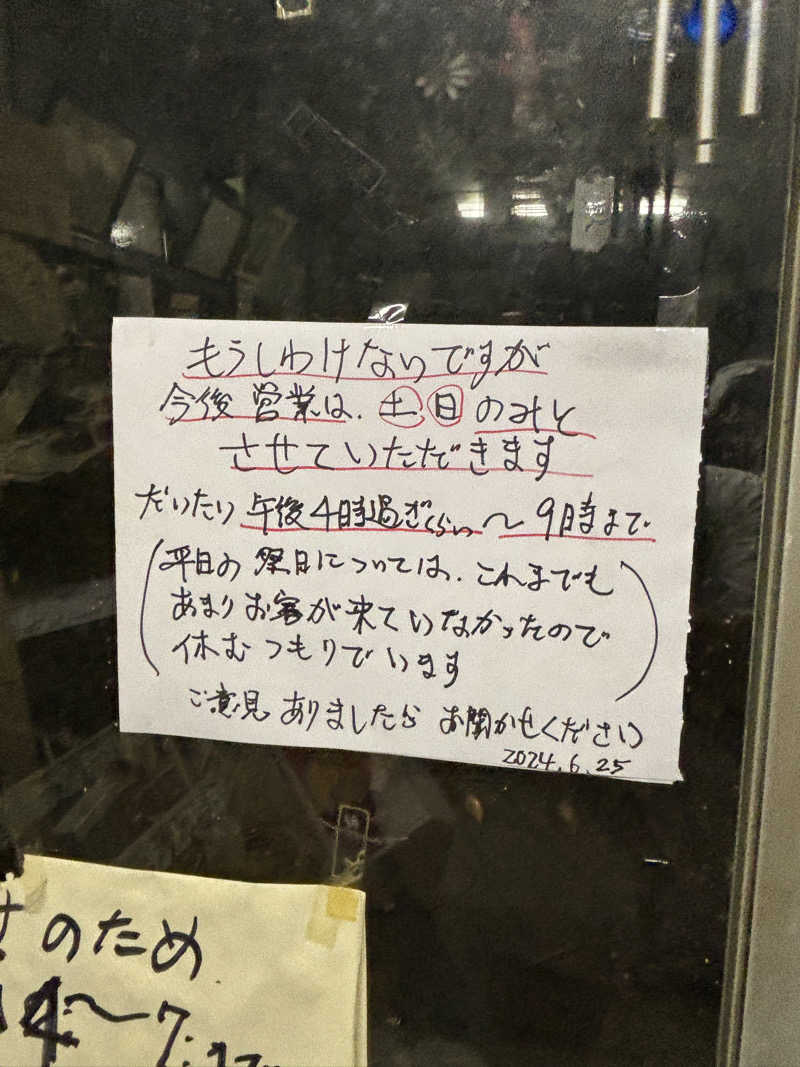 もうしわけないですが
今後 営業は、土 日 のみと
させていただきます
だいたい 午後4時過ぎくらい〜9時まで
(平日の 祭日については、これまでも
あまりお客が来ていなかったので
休むつもりでいます)
ご意見 ありましたら お聞かせください
2024.6.25
のため
4〜7: